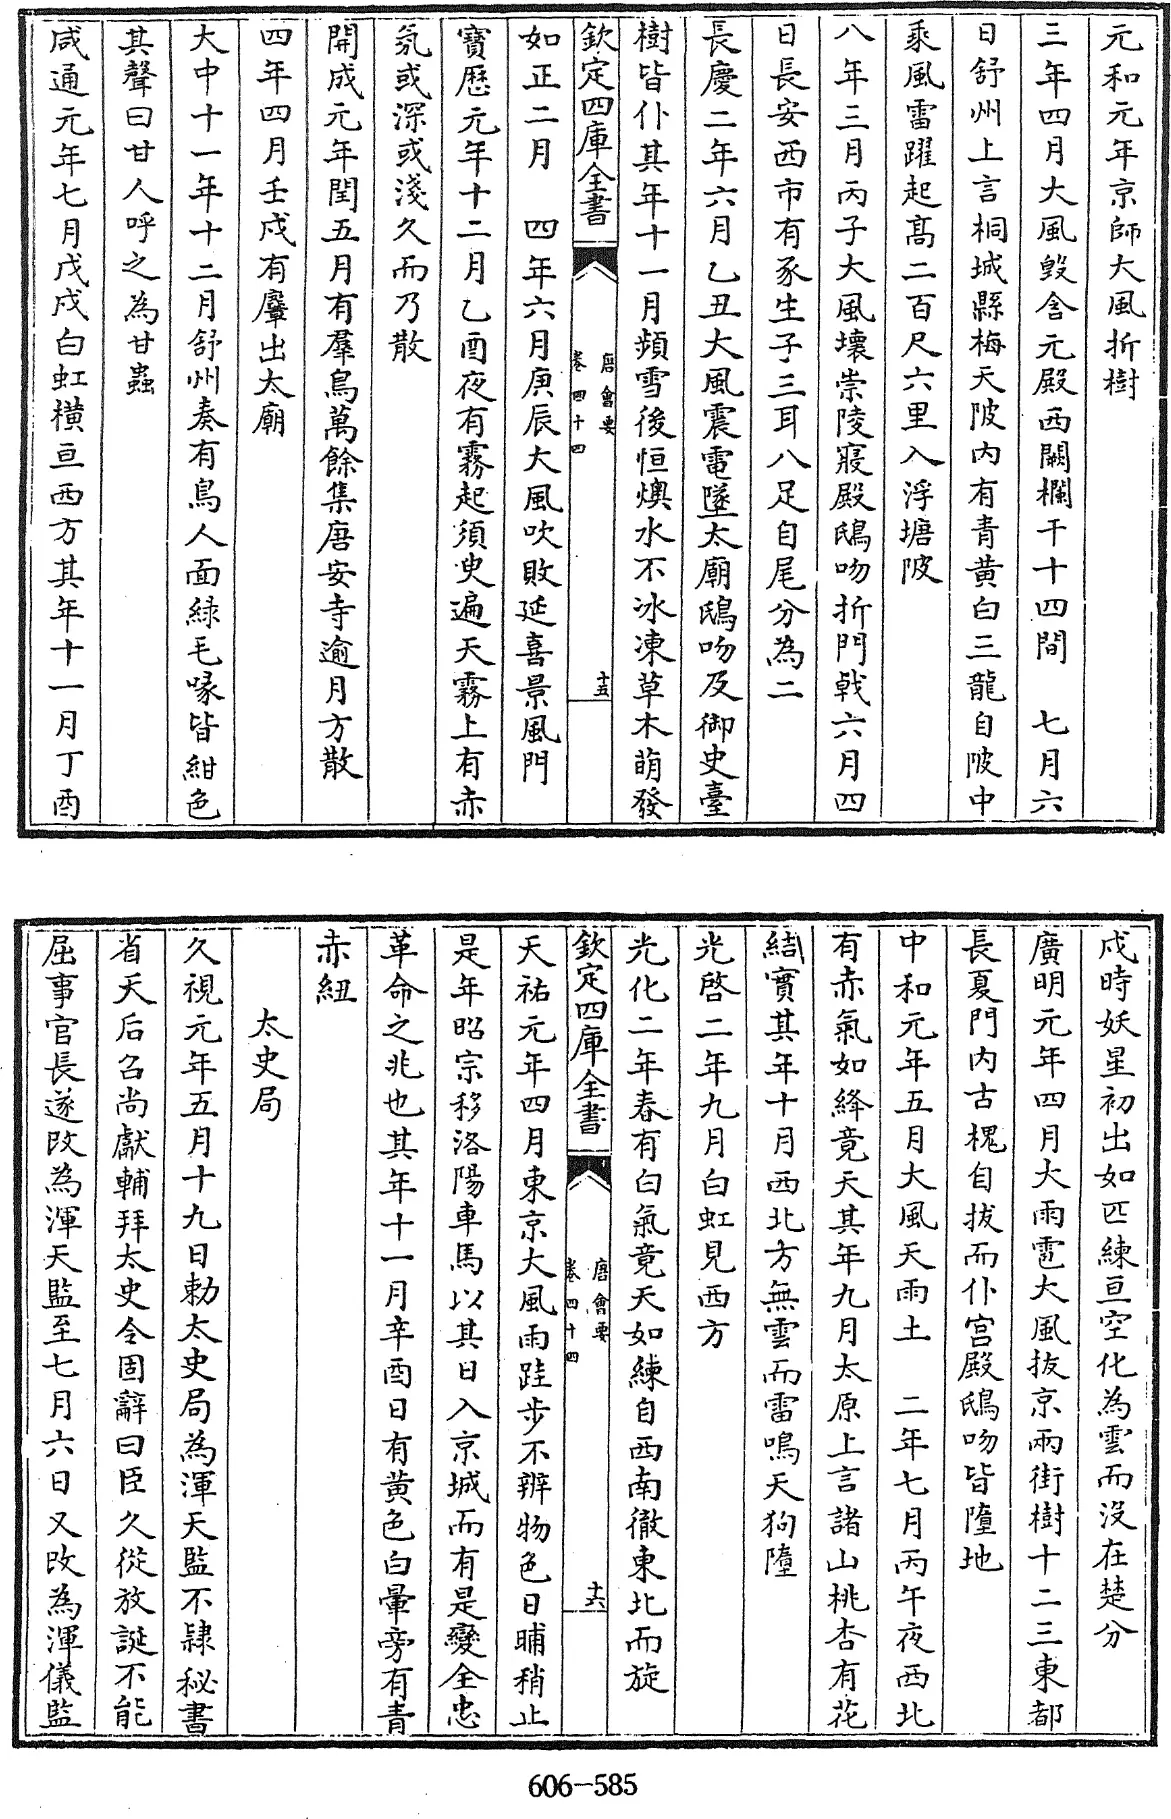 元和元年京師大風折樹
三年四月大風毀含元殿西闕欄干十四間　七月六
日舒州上言桐城縣梅天陂内有青黄白三龍自陂中
乘風雷躍起髙二百尺六里入浮塘陂
八年三月丙子大風壞崇陵寢殿鴟吻折門戟六月四
日長安西市有豕生子三耳八足自尾分為二
長慶二年六月乙丑大風震電墜太廟鴟吻及御史臺
樹皆仆其年十一月頻雪後恒燠水不冰凍草木萌發
欽定四庫全書
唐會要
卷四十四
十五
如正二月　四年六月庚辰大風吹敗延喜景風門
寳歷元年十二月乙酉夜有霧起須臾遍天霧上有赤
氛或深或淺久而乃散
開成元年閏五月有羣鳥萬餘集唐安寺逾月方散
四年四月壬戌有麞出太廟
大中十一年十二月舒州奏有鳥人面緑毛喙皆紺色
其聲曰甘人呼之為甘蟲
咸通元年七月戊戌白虹横亘西方其年十一月丁酉
戌時妖星初出如匹練亘空化為雲而沒在楚分
廣明元年四月大雨雹大風拔京兩街樹十二三東都
長夏門内古槐自拔而仆宫殿鴟吻皆墮地
中和元年五月大風天雨土　二年七月丙午夜西北
有赤氣如絳竟天其年九月太原上言諸山桃杏有花
結實其年十月西北方無雲而雷鳴天狗墮
光啓二年九月白虹見西方
光化二年春有白氣竟天如練自西南徹東北而旋
欽定四庫全書
唐會要
卷四十四
十六
天祐元年四月東京大風雨跬步不辨物色日晡稍止
是年昭宗移洛陽車馬以其日入京城而有是變全忠
革命之兆也其年十一月辛酉日有黄色白暈旁有青
赤紐
太史局
久視元年五月十九日勅太史局為渾天監不隸秘書
省天后召尚獻輔拜太史令固辭曰臣久從放誕不能
屈事官長遂改為渾天監至七月六日又改為渾儀監
606-585